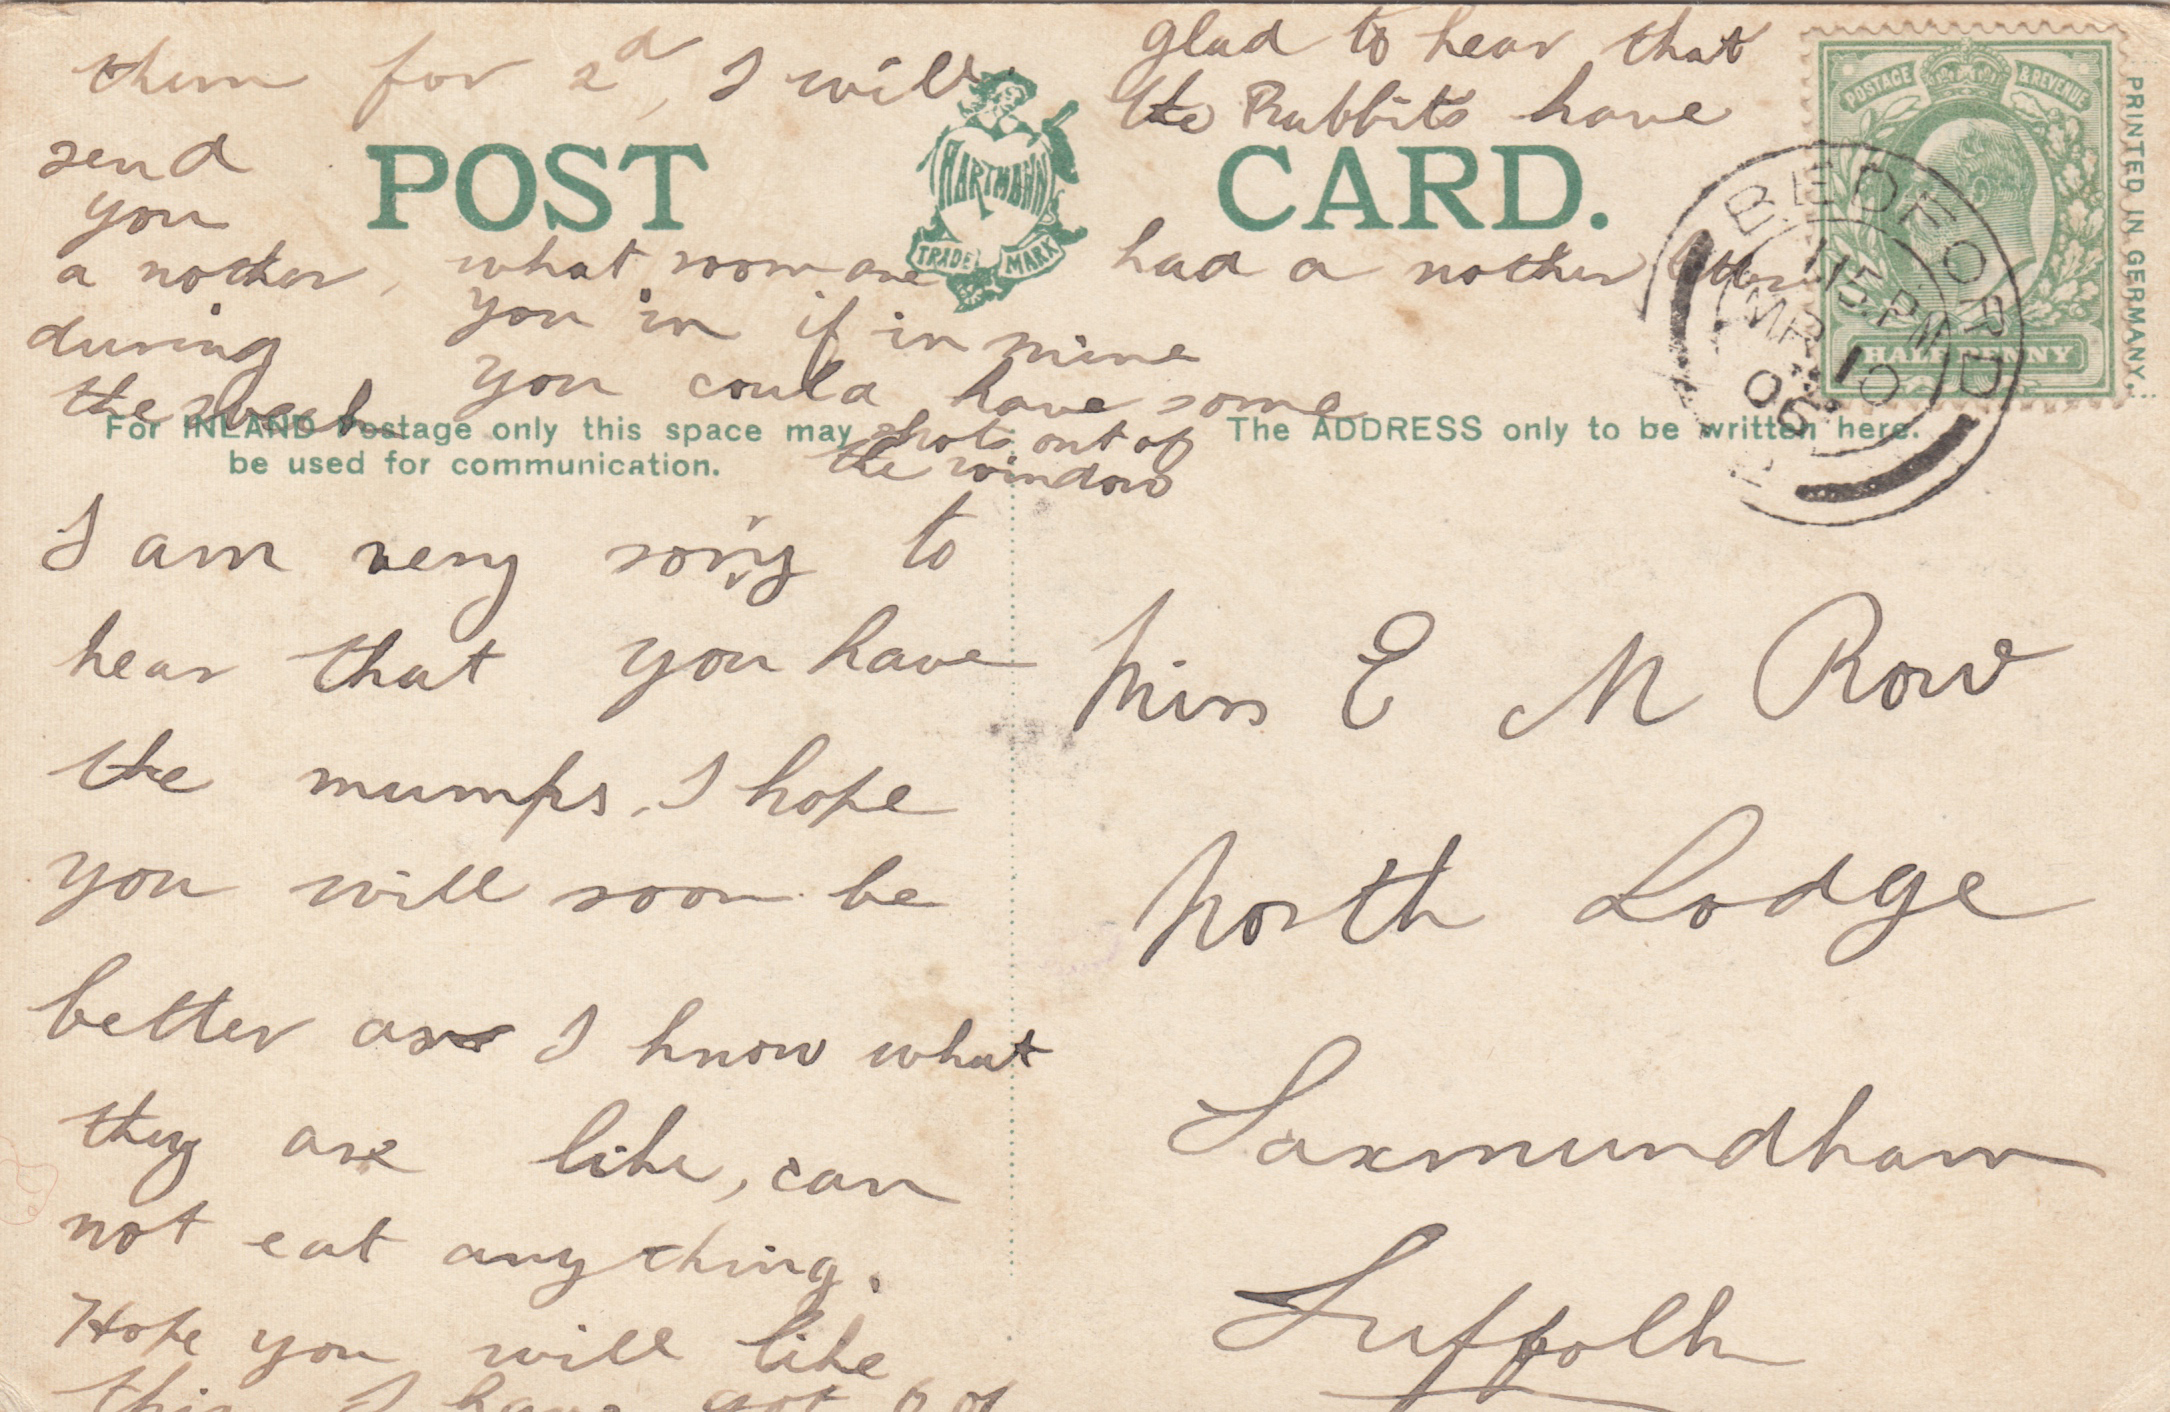 I am very sorry to
hear that you have
the mumps, I hope
you will soon be
better as I know what
they are like, can
not eat anything.
Hope you will like
this I have got 6 of
them for 2d, I will
send
you
a nother, what room are
during you in if in mine
the week you could have some
shots out of
the window
glad to hear that
the Rabbits have
had a nother litter
POST CARD.
HARTMANN
TRADE MARK
For INLAND Postage only this space may
be used for communication.
The ADDRESS only to be written here.
Miss E M Row
North Lodge
Saxmundham
Suffolk
POSTAGE & REVENUE
HALFPENNY
BEDFORD
15 PM
MR 10
06
PRINTED IN GERMANY.